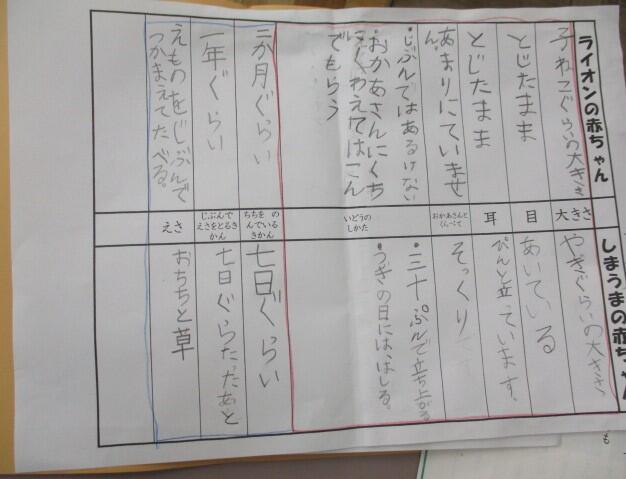 ライオンの赤ちゃん
子ねこぐらいの大きさ
とじたまま
とじたまま
あまりにていませ
ん。
・じぶんではあるけない
・おかあさんにくち
にくわえてはこん
でもらう
二か月ぐらい
一年ぐらい
えものをじぶんで
つかまえてたべる。
大きさ
目
耳
おかあさんと
くらべて
いどうの
しかた
ちちを の
んでいる
きかん
じぶんで
えさをとるき
かん
えさ
しまうまの赤ちゃん
やぎぐらいの大きさ
あいている
ぴんと立っています。
そっくり
・三十ぷんで立ち上がる
・つぎの日には、はしる。
七日ぐらい
七日ぐらたったあと
おちちと草
も